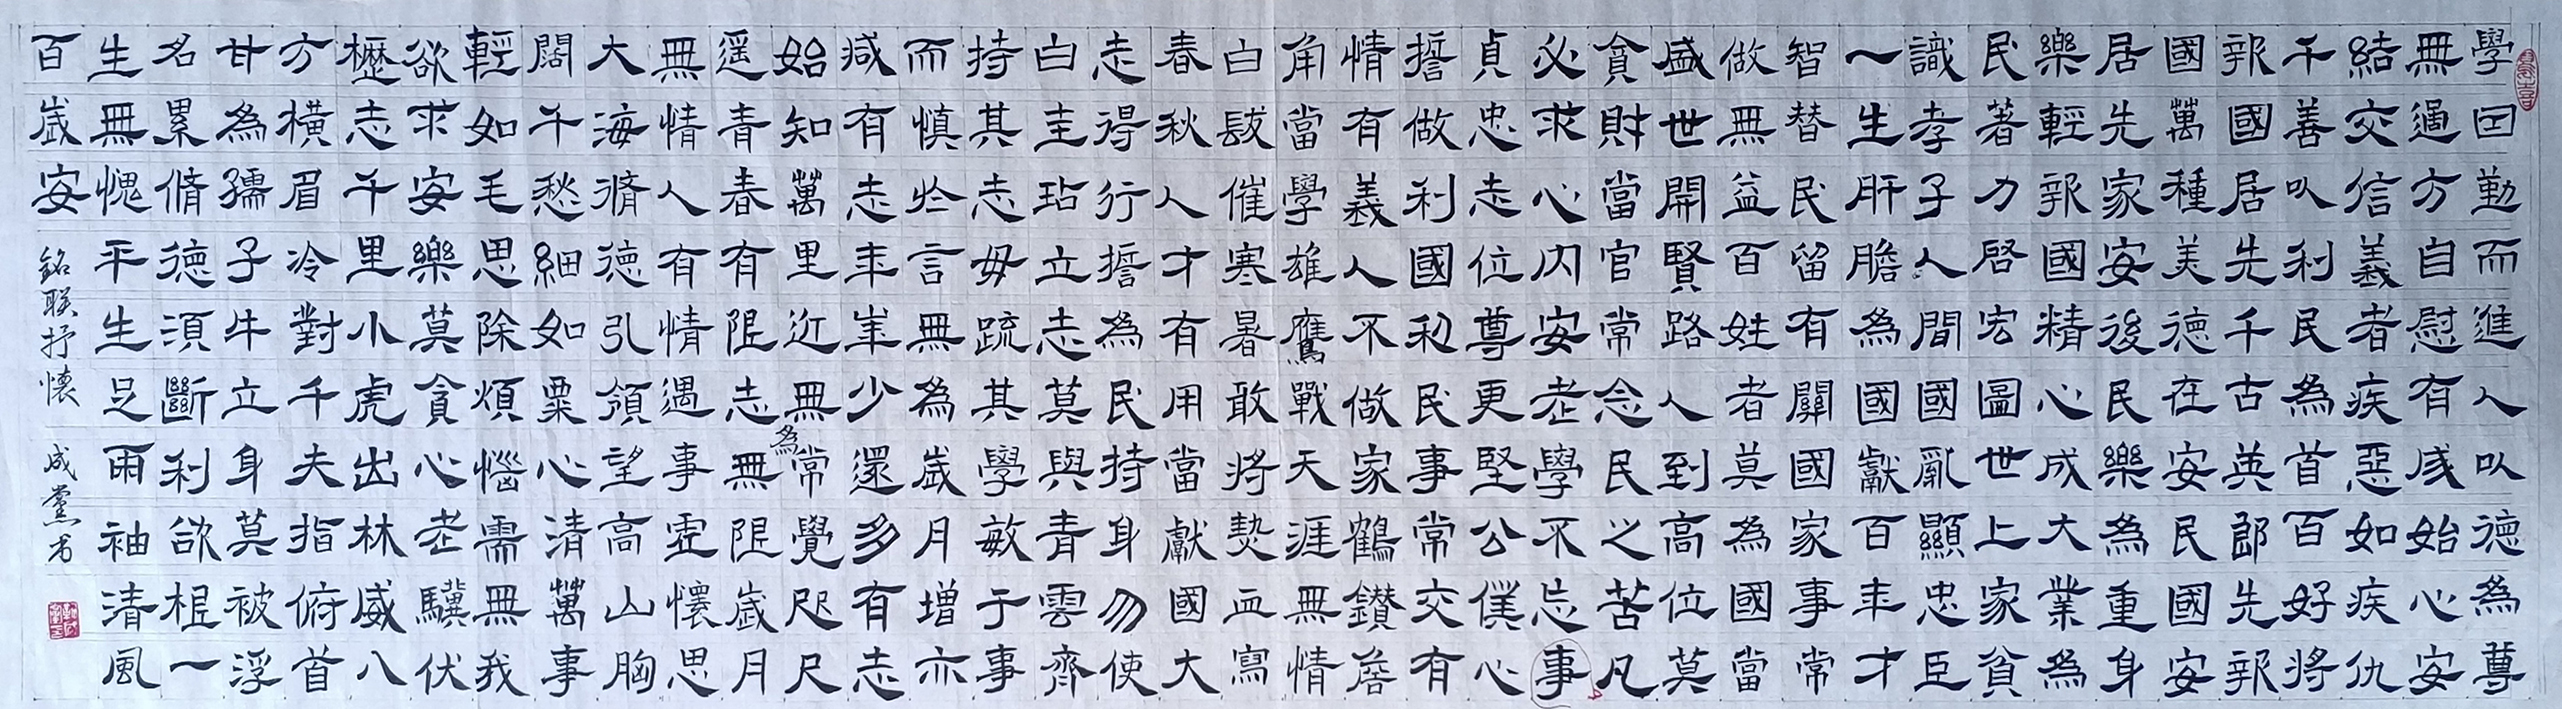 學囯勤而進人以德為尊
無過方自慰有成始心安
結交信義者疾惡如疾仇
千善以利民為首百好將
報國居先千古英郎先報
國萬種美德在安民國安
居先家安後民樂為重身
樂輕報國精心成大業為
民著力啓宏圖世上家貧
識孝子人間國亂顯忠臣
一生肝膽為國獻百年才
智替民留有關國家事常
做無益百姓者莫為國當
盛世開賢路人到高位莫
貪財當官常念民之苦凡
必求心內安老學不忘事
貞忠志位尊更堅公僕心
誓做利國利民事常交有
情有義人不做家鶴鑽簷
角當學雄鷹戰天涯無情
白髮催寒暑敢將熱血寫
春秋人才有用當獻國大
志得行誓為民持身勿使
白圭玷立志莫與青雲齊
持其志毋疏其學敏于事
而慎於言無為歲月增亦
減有志年年少還多有志
始知萬里近無為常覺咫尺
遥青春有限志無限歲月
無情人有情遇事虛懷思
大海脩德引領望高山胸
闊千愁細如粟心清萬事
輕如毛思除煩惱需無我
欲求安樂莫貪心老驥伏
櫪志千里小虎出林威八
方橫眉冷對千夫指俯首
甘為孺子牛立身莫被浮
名累脩德須斷利欲根一
生無愧平生足兩袖清風
百歲安
銘联抒懷 成黨书